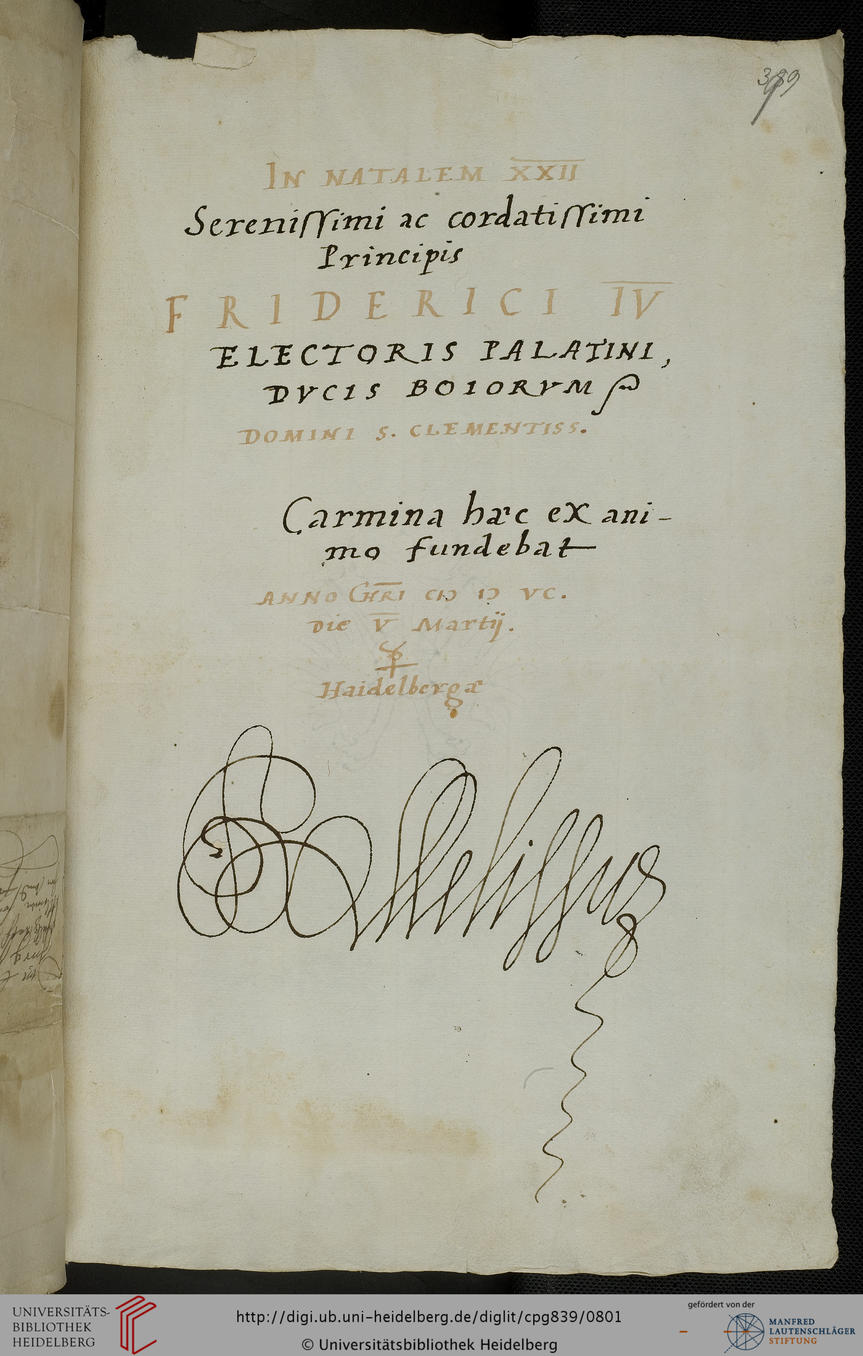 389
IN NATALEM XXII
Sereniſſimi ac cordatiſſimi
Principis
FRIDERICI IV
ELECTORIS PALATINI,
DVCIS BOIORVM
DOMINI S. CLEMENTISS.
Carmina hæc ex ani-
mo fundebat
ANNO CHRI CIↃ IↃ VC.
Die V Martij.
Haidelbergæ
Melissus
UNIVERSITÄTS-
BIBLIOTHEK
HEIDELBERG
http://digi.ub.uni-heidelberg.de/diglit/cpg839/0801
© Universitätsbibliothek Heidelberg
gefördert von der
MANFRED
LAUTENSCHLÄGER
STIFTUNG